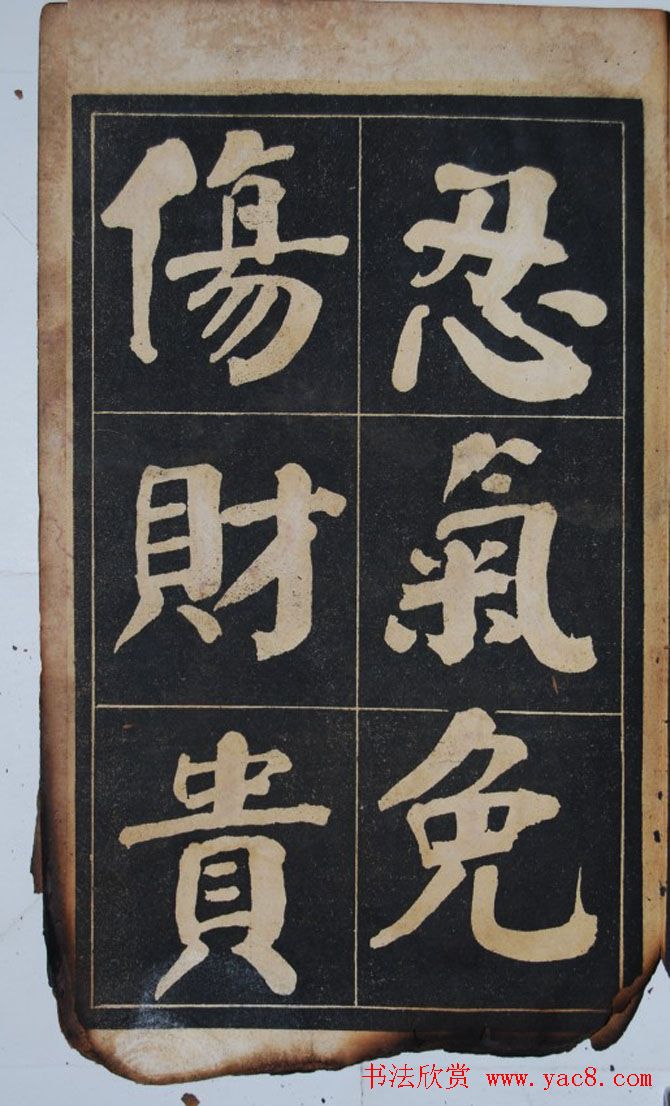 忍氣免
傷財貴
书法欣赏 www.yac8.com